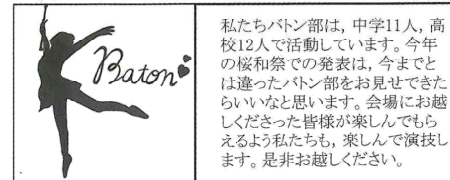 Baton
私たちバトン部は，中学11人，高
校12人で活動しています。今年
の桜和祭での発表は，今までと
は違ったバトン部をお見せできた
らいいなと思います。会場にお越
しくださった皆様が楽しんでもら
えるよう私たちも，楽しんで演技し
ます。是非お越しください。